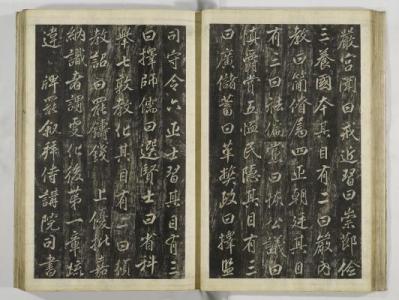 嚴宮闈曰戒近習曰崇節儉
三養國本其目有二曰嚴內
教曰簡僚屬四正朝廷其目
有三曰實曰恢公議曰
慎爵賞五恤民隱其目有三
曰廣儲蓄曰革弊政曰擇監
司守令六正士習其目有三
曰擇師儒曰選貢士曰省科
舉七敦教化其目有二曰頒
教詔曰罷鑄錢 上優批嘉
納識者謂更化後第一章疏
罷侍講院司書